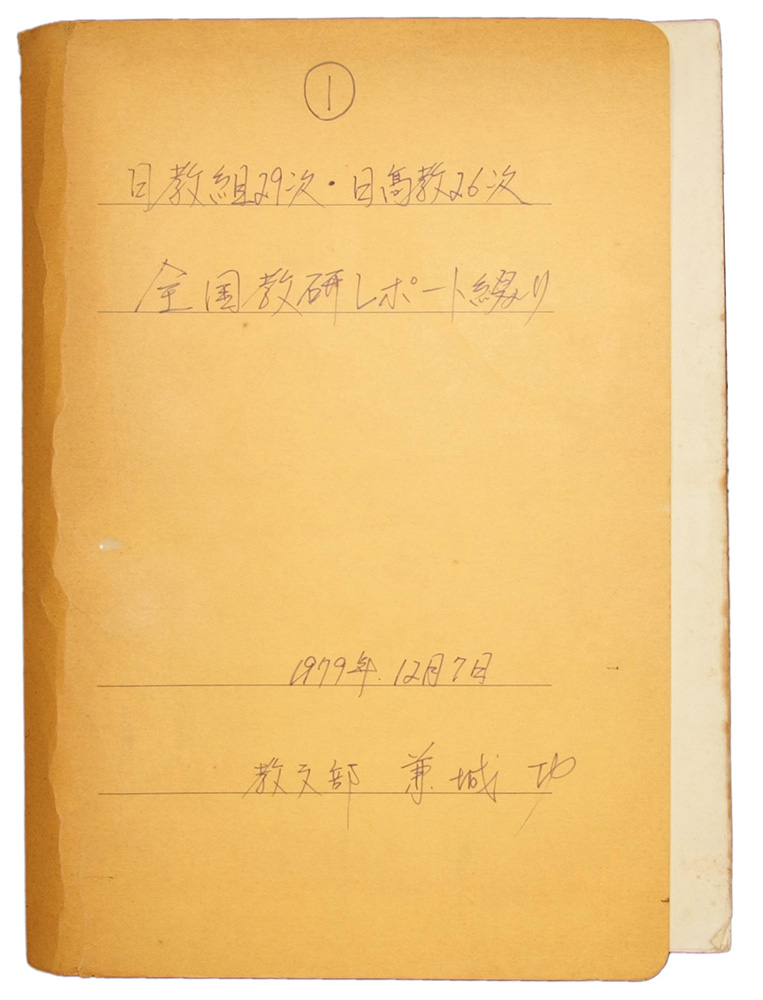 ①
日教組29次・日高教26次
全国教研レポート綴り
1979年.12月7日
教文部 兼城 功